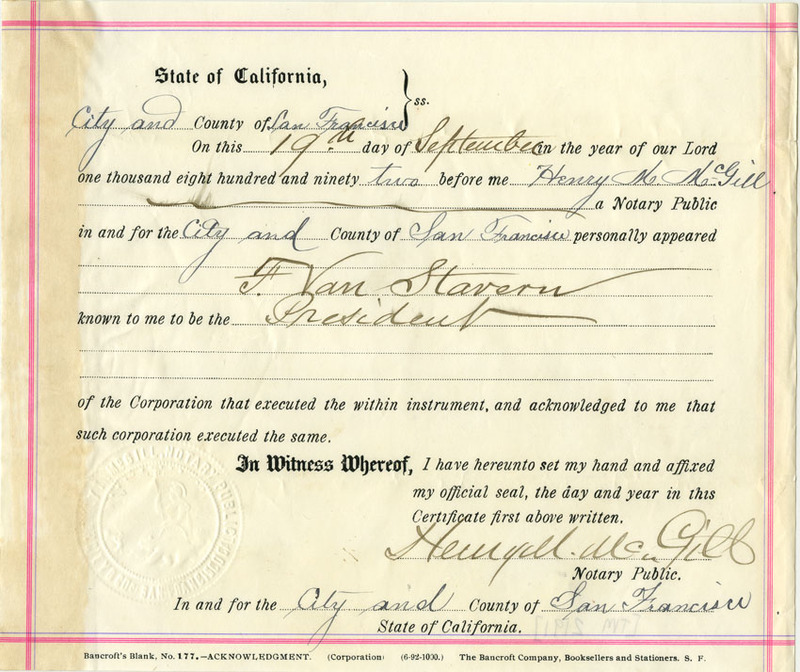 State of California,
ss.
City and County of San Francisco
On this 19th day of September in the year of our Lord
one thousand eight hundred and ninety two before me Henry M McGill
a Notary Public
in and for the City and County of San Francisco personally appeared
F. Van Stavern
known to me to be the President
of the Corporation that executed the within instrument, and acknowledged to me that
such corporation executed the same.
In Witness Whereof, I have hereunto set my hand and affixed
my official seal, the day and year in this
Certificate first above written.
Henry M. McGill
Notary Public.
In and for the City and County of San Francisco
State of California.
Bancroft's Blank, No. 177.—ACKNOWLEDGMENT. (Corporation) (6-92-1000.) The Bancroft Company, Booksellers and Stationers. S. F.